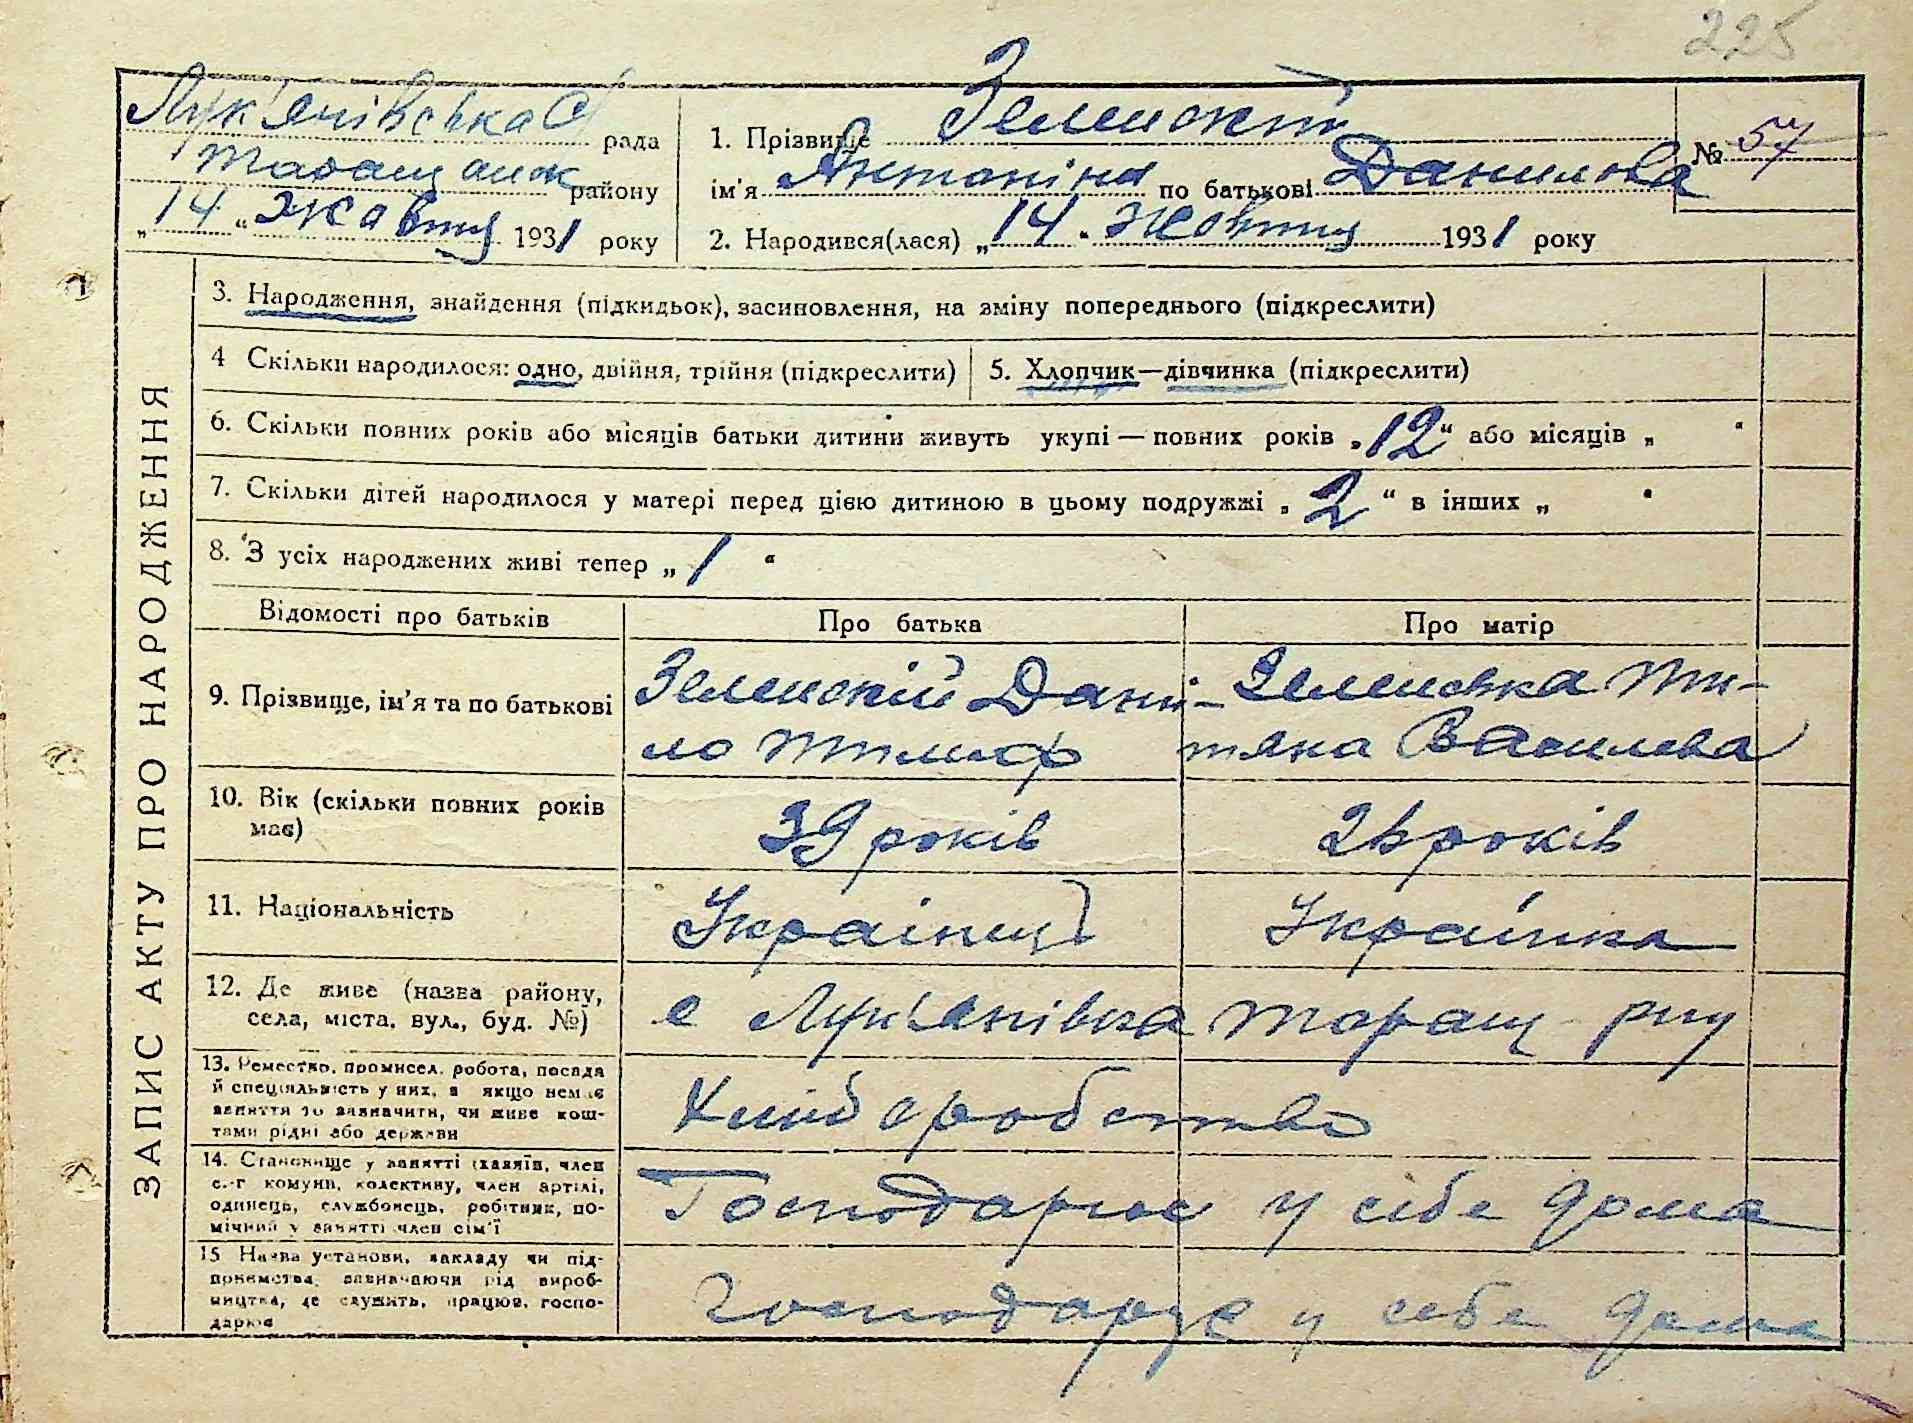 225
Лук'янівська С/ рада
Таращанск району
„14“ Жовтня 1931 року
1. Прізвище Зеленский
№ 57
ім'я Антоніна по батькові Данилова
2. Народився(лася) „14“ Жовтня 1931 року
ЗАПИС АКТУ ПРО НАРОДЖЕННЯ
3. Народження, знайдення (підкидьок), засиновлення, на зміну попереднього (підкреслити)
4 Скільки народилося: одно, двійня, трійня (підкреслити)
5. Хлопчик—дівчинка (підкреслити)
6. Скільки повних років або місяців батьки дитини живуть укупі — повних років „12“ або місяців „ “
7. Скільки дітей народилося у матері перед цією дитиною в цьому подружжі „2“ в інших „ “
8. З усіх народжених живі тепер „1“
Відомості про батьків
Про батька
Про матір
9. Прізвище, ім'я та по батькові
Зеленскій Дани-
ло Тимоф
Зеленська
Василева
10. Вік (скільки повних років
має)
39 років
26 років
11. Національність
Украінець
Украінка
12. Де живе (назва району,
села, міста, вул., буд. №)
с Лук'янівка Таращ р-ну
13. Ремество, промисел, робота, посада
й спеціяльність у них, а якщо немає
заняття то зазначити, чи живе кош-
тами рідні або держави
Хліборобство
14. Становище у занятті (хазяїн, член
с.-г комуни, колективу, член артілі,
одинець, службовець, робітник, по-
мічний у занятті член сім'ї
Господарює у сібе дома
15 Назва установи, закладу чи під-
приємства, зазначаючи рід вироб-
ництва, де служить, працює, госпо-
дарює
Господарує у себе дома